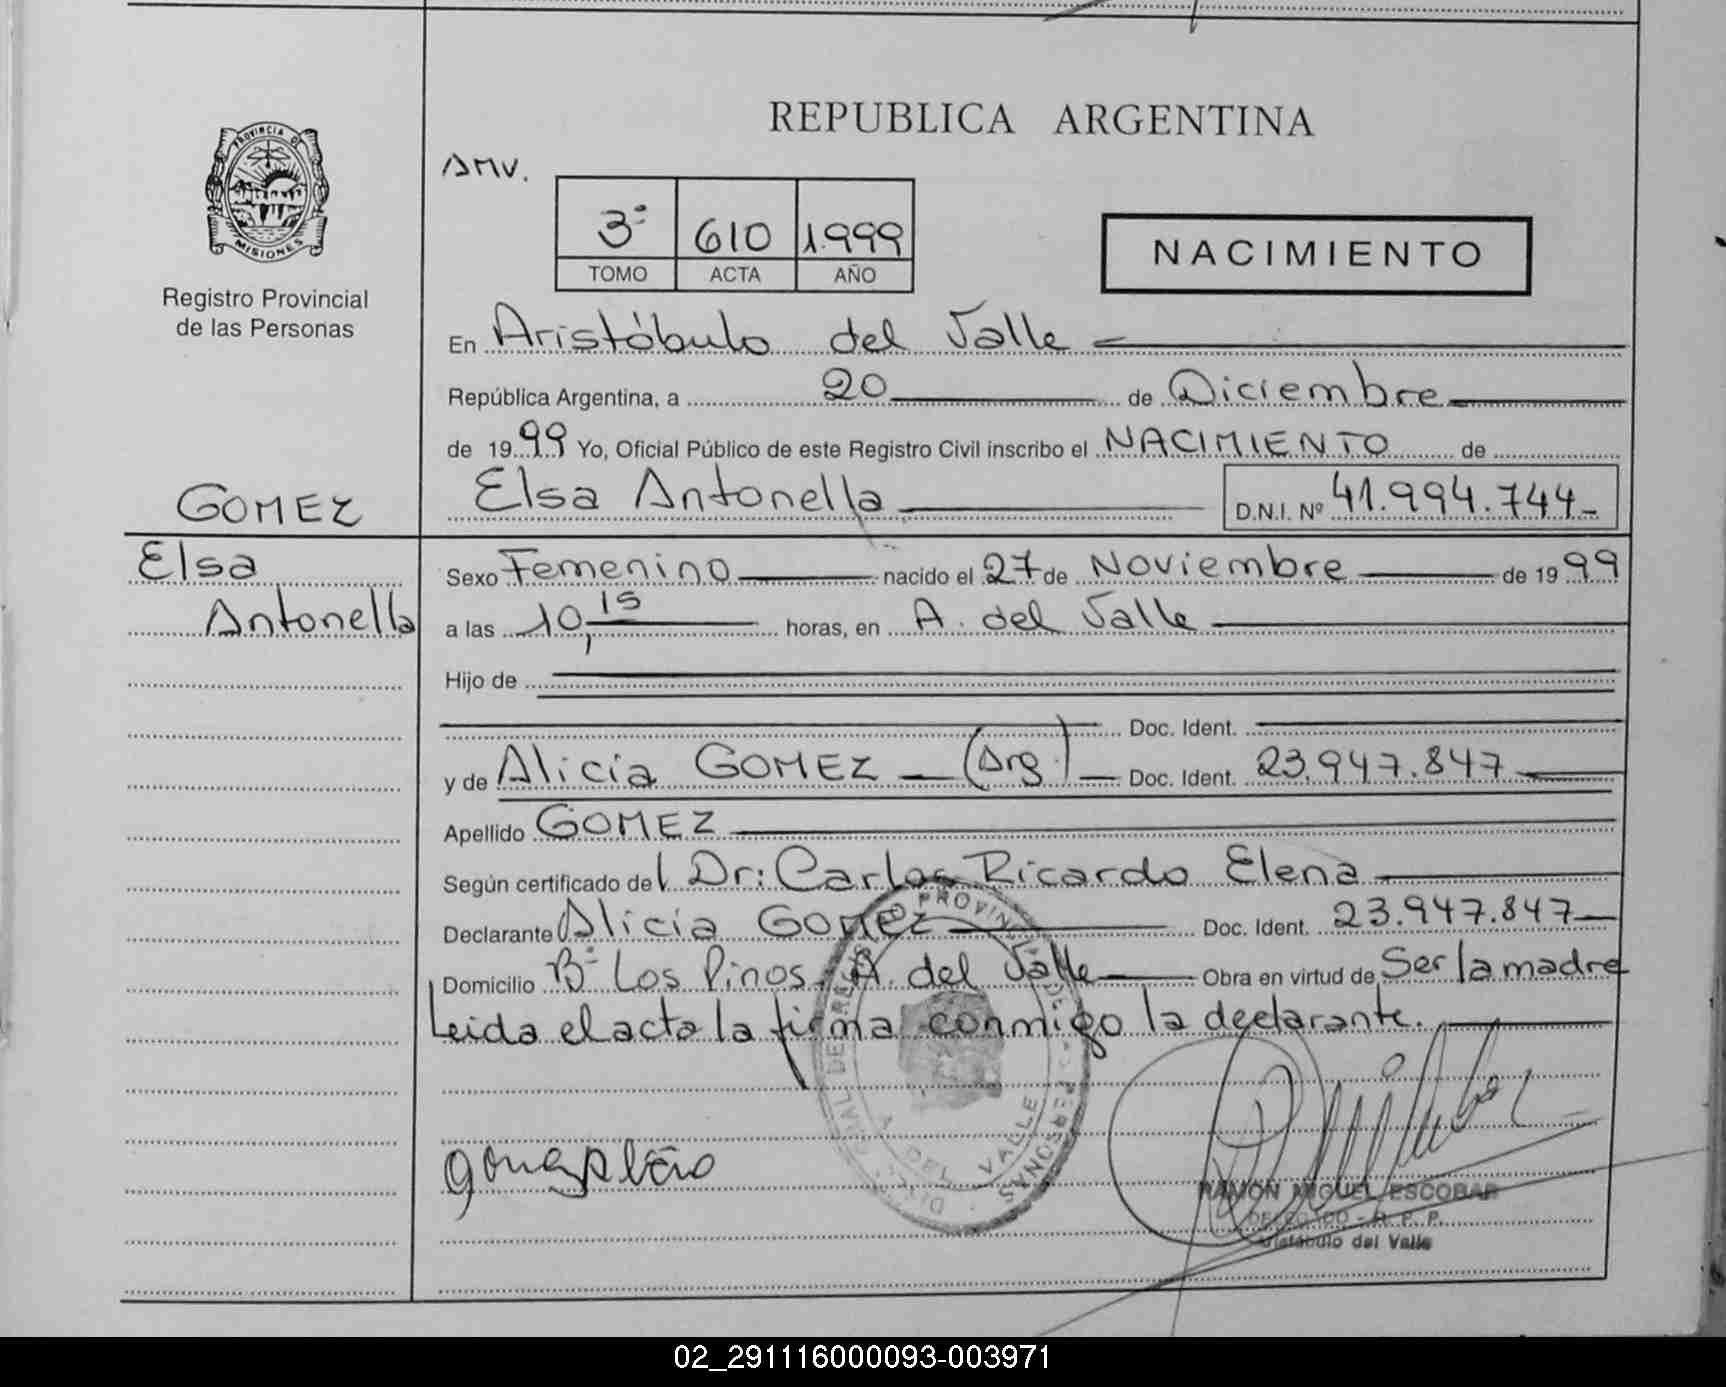 REPUBLICA ARGENTINA
PROVINCIA DE
MISIONES
Registro Provincial
de las Personas
AMV.
3º 610 1999
TOMO ACTA AÑO
NACIMIENTO
En Aristóbulo del Valle
República Argentina, a 20 de Diciembre
de 1999 Yo, Oficial Público de este Registro Civil inscribo el NACIMIENTO de
Elsa Antonella D.N.I. Nº 41.994.744
GOMEZ
Elsa
Antonella
Sexo Femenino nacido el 27 de Noviembre de 1999
a las 10,15 horas, en A. del Valle
Hijo de
Doc. Ident.
y de Alicia GOMEZ (Arg.) Doc. Ident. 23.947.847
Apellido GOMEZ
Según certificado del Dr: Carlos Ricardo Elena
Declarante Alicia GOMEZ Doc. Ident. 23.947.847
Domicilio Bº Los Pinos. A. del Valle Obra en virtud de Ser la madre
Leida el acta la firma conmigo la declarante.
RAMON MIGUEL ESCOBAR
DELEGADO - R. P. P.
Aristóbulo del Valle
02_291116000093-003971